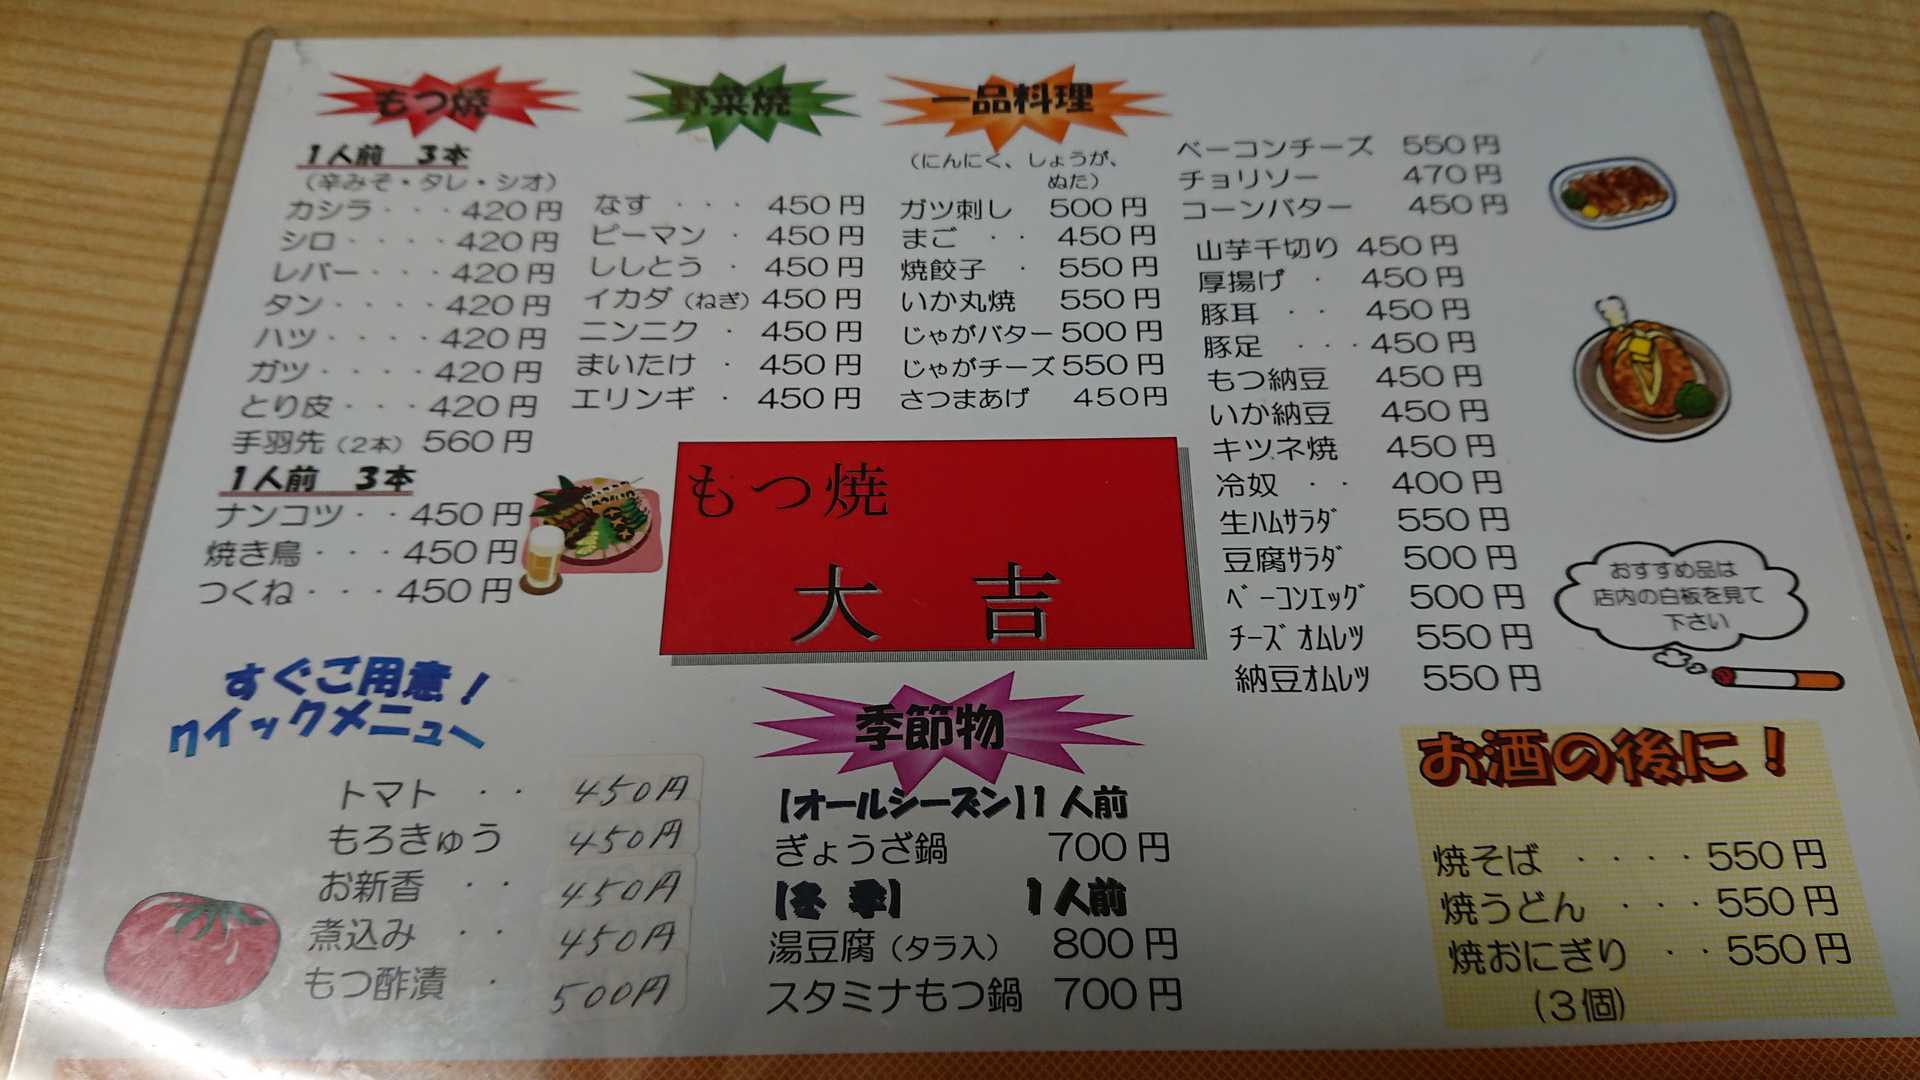 もつ焼
1人前 3本
(辛みそ・タレ・シオ)
カシラ・・・420円
シロ・・・・420円
レバー・・・420円
タン・・・・420円
ハツ・・・・420円
ガツ・・・・420円
とり皮・・・420円
手羽先(2本) 560円
1人前 3本
ナンコツ・・450円
焼き鳥・・・450円
つくね・・・450円
野菜焼
なす ・・・ 450円
ピーマン ・ 450円
ししとう ・ 450円
イカダ(ねぎ) 450円
ニンニク ・ 450円
まいたけ ・ 450円
エリンギ ・ 450円
一品料理
(にんにく、しょうが、
ぬた)
ガツ刺し 500円
まご ・・ 450円
焼餃子 ・ 550円
いか丸焼 550円
じゃがバター 500円
じゃがチーズ 550円
さつまあげ 450円
ベーコンチーズ 550円
チョリソー 470円
コーンバター 450円
山芋千切り 450円
厚揚げ ・ 450円
豚耳 ・・ 450円
豚足 ・・・450円
もつ納豆 450円
いか納豆 450円
キツネ焼 450円
冷奴 ・・ 400円
生ハムサラダ 550円
豆腐サラダ 500円
ベーコンエッグ 500円
チーズオムレツ 550円
納豆オムレツ 550円
おすすめ品は
店内の白板を見て
下さい
もつ焼
大 吉
すぐご用意!
クイックメニュー
トマト ・・ 450円
もろきゅう 450円
お新香 ・・ 450円
煮込み ・・ 450円
もつ酢漬 ・ 500円
季節物
【オールシーズン】1人前
ぎょうざ鍋 700円
【冬 季】 1人前
湯豆腐(タラ入) 800円
スタミナもつ鍋 700円
お酒の後に!
焼そば ・・・・550円
焼うどん ・・・550円
焼おにぎり ・・550円
(3個)